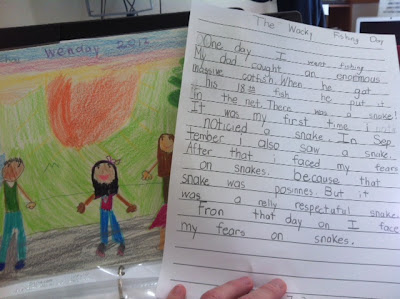 Wenday 2012
The Wacky Fishing Day
One day I went fishing
My dad caught an enormous
massive catfish. When he got
his 18th fish he put it
in the net. There was a snake!
It was my first time I
noticied a snake. In Sep
tember I also saw a snake.
After that i faced my fears
on snakes. because that
snake was posinnes. But it
was a relly respectful snake.
Fron that day on I face
my fears on snakes.